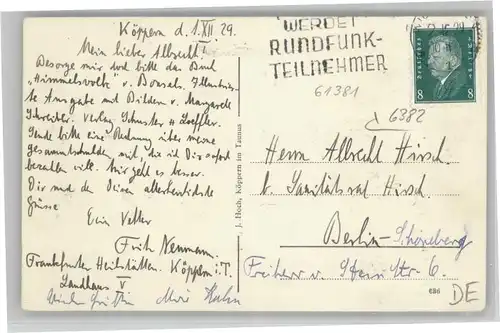 Köppern d. 1.XII 29.
Mein lieber Albrecht!
Besorge mir doch bitte das Buch
"Himmelsvolk" v. Bonsels. Illustrier-
te Ausgabe mit Bildern v. Margarete
Schreiber. Verlag Schuster & Loeffler.
Sende bitte eine Rechnung über meine
Gesamtschulden mit, die ich Dir sofort
bezahlen will. Mir geht es besser.
Dir und de Deinen allerherzlichste
Grüsse
Dein Vetter
Fritz Neumann.
Frankfurter Heilstätten. Köppern i.T.
Landhaus V
J. Hoch, Köppern im Taunus
WERDET
RUNDFUNK-
TEILNEHMER
Deutsches Reich
8 8
61381
6382
Herrn Albrecht Hirsch.
b. Sanitätsrat Hirsch.
Berlin-Schöneberg
Freiherr v. Stein Str. 6.
686
DE